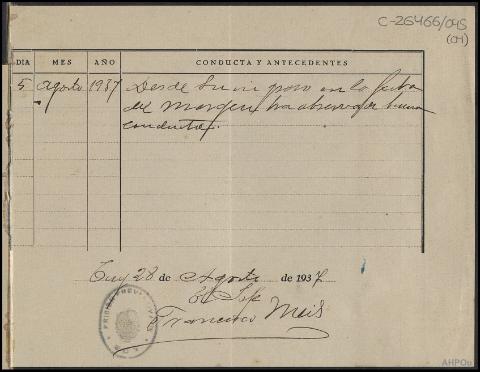 C-26466/045
(04)
DIA MES AÑO CONDUCTA Y ANTECEDENTES
5 agosto 1937 Desde su ingreso en la fecha
del margen ha observado buena
conducta.
Tuy 28 de Agosto de 1937.
El Jefe
Francisco Meis
PRISION PREVENTIVA
AHPOu